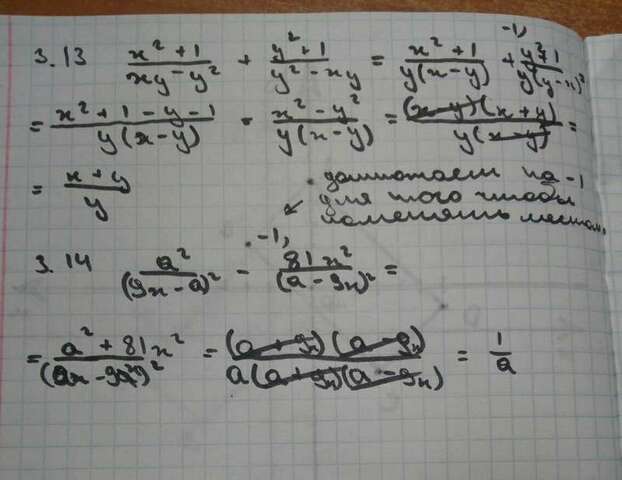 3.13 (x² + 1)/(xy − y²) + (y² + 1)/(y² − xy) = (x² + 1)/(y(x − y)) + ⁻¹⁾(y² + 1)/(y(y − x)²) 
= (x² + 1 − y − 1)/(y(x − y)) = (x² − y²)/(y(x − y)) = ((x − y)(x + y))/(y(x − y)) =
= (x + y)/y
домножаем на -1
для того чтобы
поменять местам.
3.14 a²/(9x − a)² − ⁻¹⁾81x²/(a − 9x)² =
= (a² + 81x²)/( )² = ((a + 9x)(a − 9x))/(a(a + 9x)(a − 9x)) = 1/a